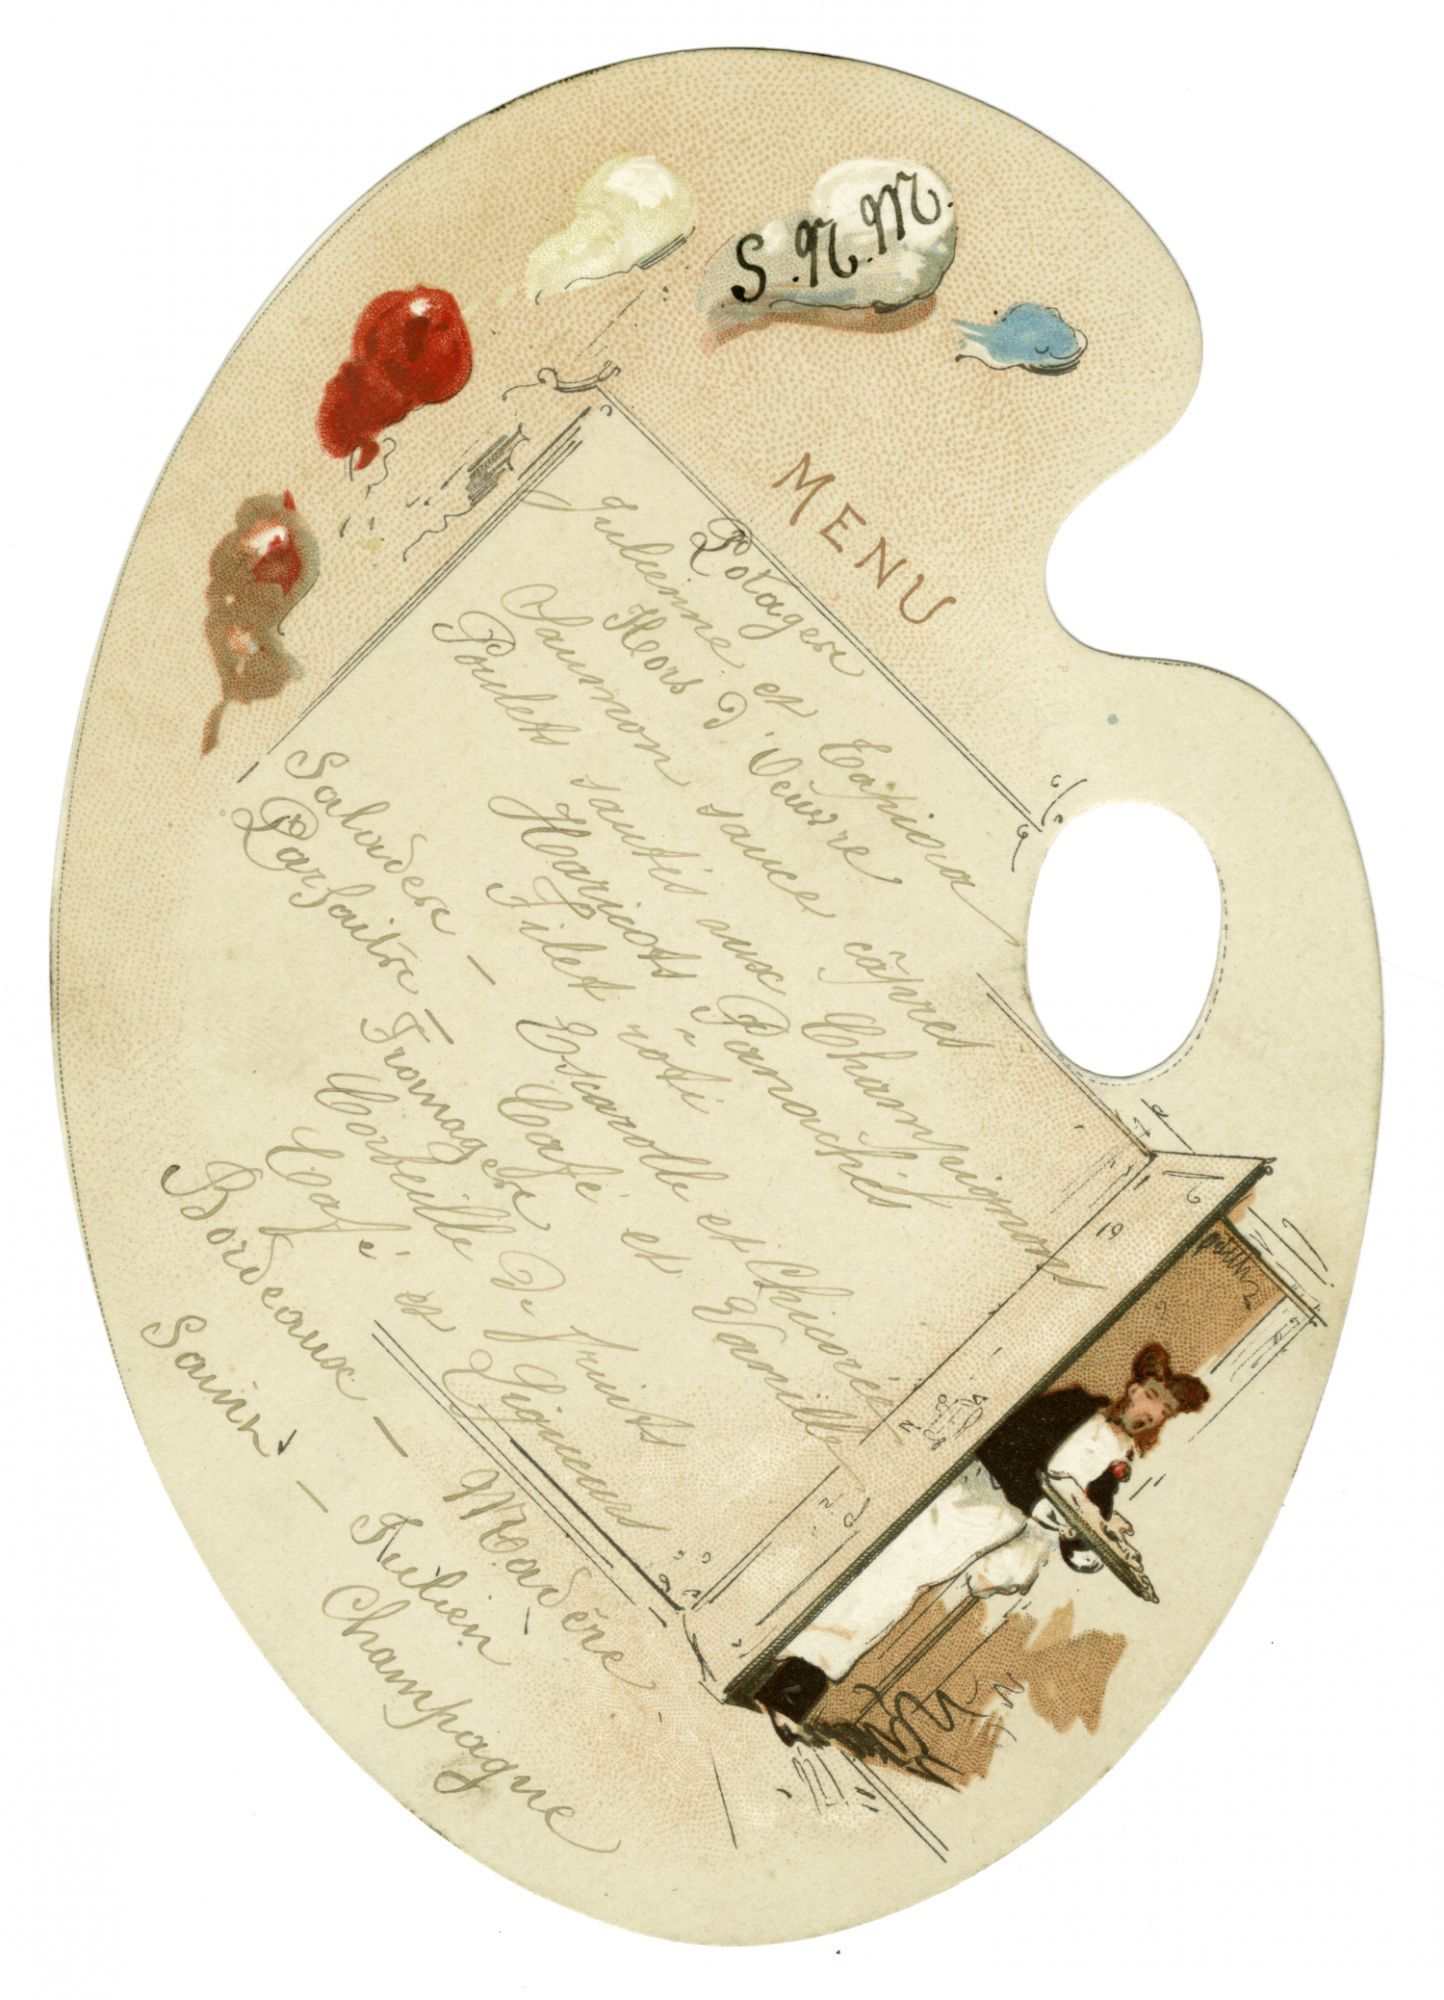 S. N. M.
MENU
Potages
Julienne et Tapioca
Hors d'Oeuvre
Saumon sauce câpres
Poulets sautés aux Champignons
Haricots Panachés
Filet rôti
Salades — Escarolle et Chicorée
Parfaits — Café et Vanille
Fromages
Corbeille de fruits
Café et Liqueurs
Bordeaux — Madère
Saint - Julien
Champagne